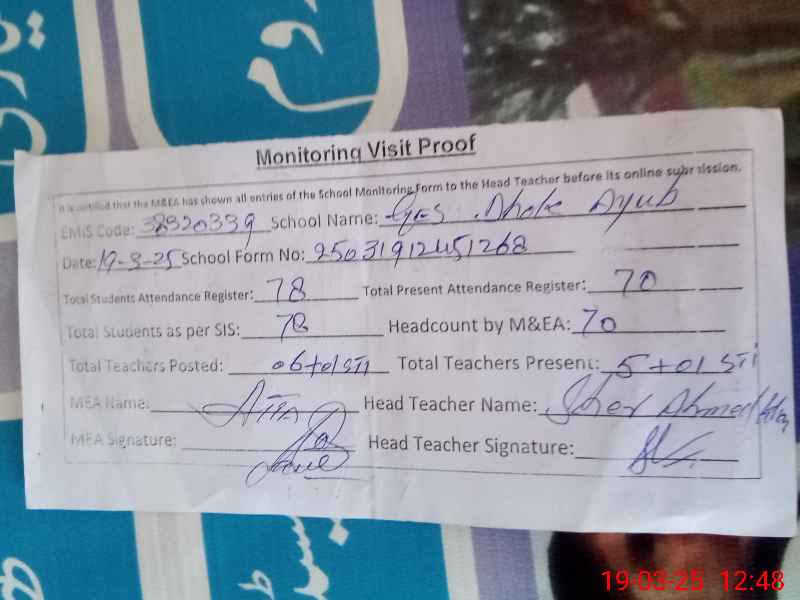 روم
Monitoring Visit Proof
It is certified that the M&EA has shown all entries of the School Monitoring Form to the Head Teacher before its online submission.
EMIS Code: 38920339 School Name: Dhoke Ayub
Date: 19-3-25 School Form No: 25031912451268
Total Students Attendance Register: 78 Total Present Attendance Register: 70
Total Students as per SIS: 78 Headcount by M&EA: 70
Total Teachers Posted: 06+01 STI Total Teachers Present: 5+01 STI
MEA Name: Head Teacher Name: Sher Ahmed
MEA Signature: Head Teacher Signature:
19-03-25 12:48